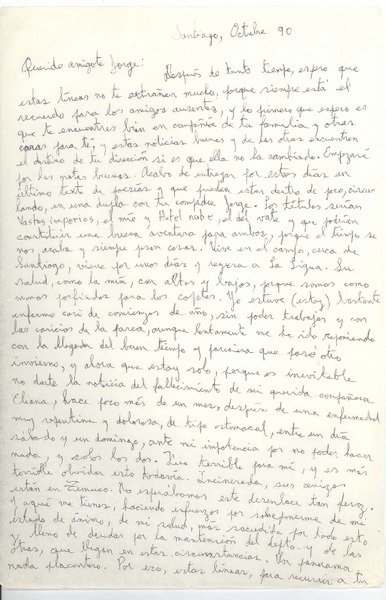 Santiago, Octubre 90
Querido amigote Jorge: Después de tanto tiempo, espero que
estas líneas no te extrañen mucho, porque siempre está el
recuerdo para los amigos ausentes, y lo primero que espero es
que te encuentres bien en compañía de tu familia y otras
caras para ti, y estas noticias buenas y de las otras encuentren
el destino de tu dirección si es que ella no ha cambiado. Empezaré
por las notas buenas. Acabo de entregar por estos días un
último texto de poesías y que pueden estar dentro de poco, circu
lando, en una dupla con tu compadre Jorge. Los títulos serían
Vastos imperios, el mío y Hotel nube, el del vate y que podrían
constituir una buena aventura para ambos, porque el tiempo se
nos acaba y siempre pasan cosas. Vive en el campo, cerca de
Santiago, viene por unos días y regresa a La Ligua. Su
salud, como la mía, con altos y bajos, porque somos como
somos porfiados para los copetes. Yo estuve (estoy) bastante
enfermo casi de comienzos de año, sin poder trabajar y con
las caricias de la parca, aunque lentamente me he ido reponiendo
con la llegada del buen tiempo y pareciera que pasé otro
invierno, y ahora que estoy solo, porque es inevitable
no darte la noticia del fallecimiento de mi querida compañera
Eliana, hace poco más de un mes, después de una enfermedad
muy repentina y dolorosa, de tipo estomacal, entre un día
sábado y un domingo, ante mi impotencia por no poder hacer
nada, y solos los dos. Fue terrible para mí, y es más
terrible olvidar esto todavía. Incinerada, sus cenizas
están en Temuco. No esperábamos este desenlace tan feroz.
Y aquí me tienes, haciendo esfuerzos por sobreponerme de mi
estado de ánimo, de mi salud, más sacudida por todo esto
y lleno de deudas por la mantención del depto. y de las
otras, que llegan en estas circunstancias. Un panorama
nada placentero. Por eso, estas líneas, para recurrir a tu